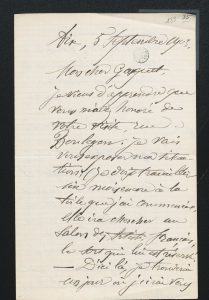 Aix, 5 Septembre 1903.
Mon cher Gasquet,
je viens d'apprendre que
vous m'avez honoré de
votre visite, rue
Boulegon. je vais
vous exposer ma situa
tion. j'ai à travailler
six mois encore à la
toile que j'ai commencée
elle ira chercher au
Salon des Artistes français,
le sort qui lui est réservé
— D'ici là je trouverai
un jour où j'irai vous